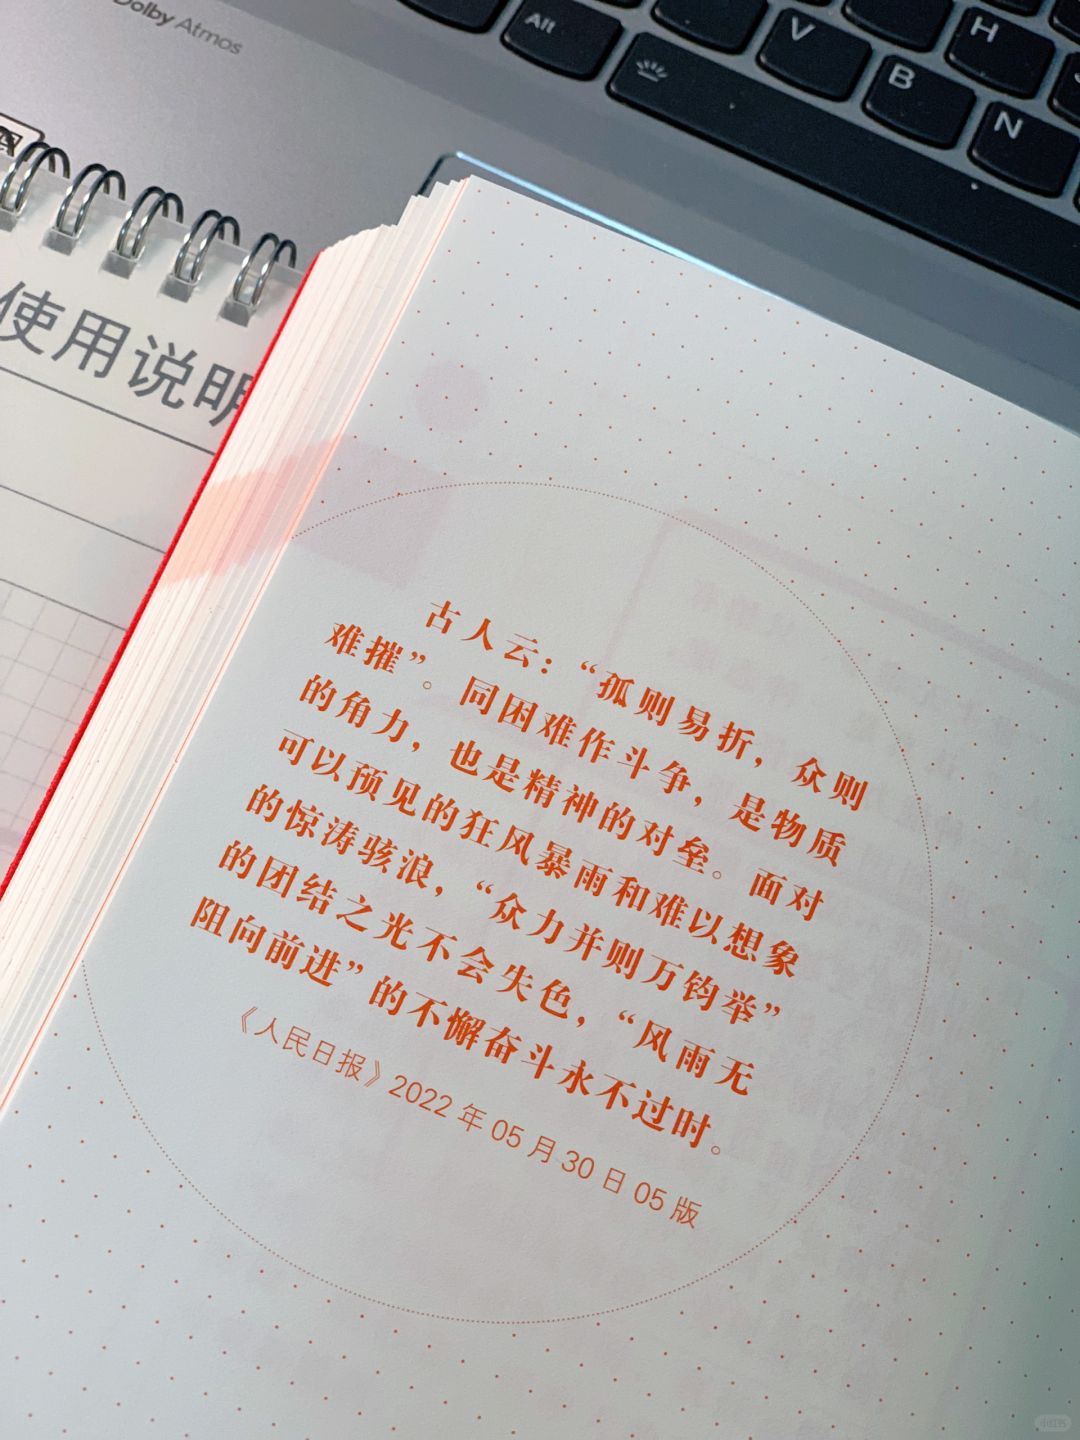 Dolby Atmos
Alt
V
B
H
N
使用说明
古人云：“孤则易折，众则
难摧”。同困难作斗争，是物质
的角力，也是精神的对垒。面对
可以预见的狂风暴雨和难以想象
的惊涛骇浪，“众力并则万钧举”
的团结之光不会失色，“风雨无
阻向前进”的不懈奋斗永不过时。
《人民日报》2022 年 05 月 30 日 05 版
小红书